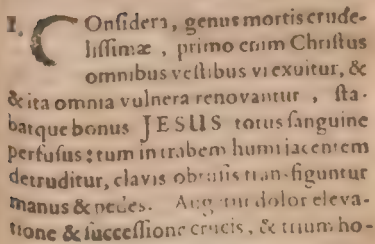 I. COnsidera, genus mortis crude-
lissimæ, primo enim Christus
omnibus vestibus vi exuitur, &
& ita omnia vulnera renovantur, sta-
batque bonus JESUS totus sanguine
perfusus: tum in trabem humi jacentem
detruditur, clavis obtusis tran-siguntur
manus & pedes. Augetur dolor eleva-
tione & successione crucis, & trium ho-